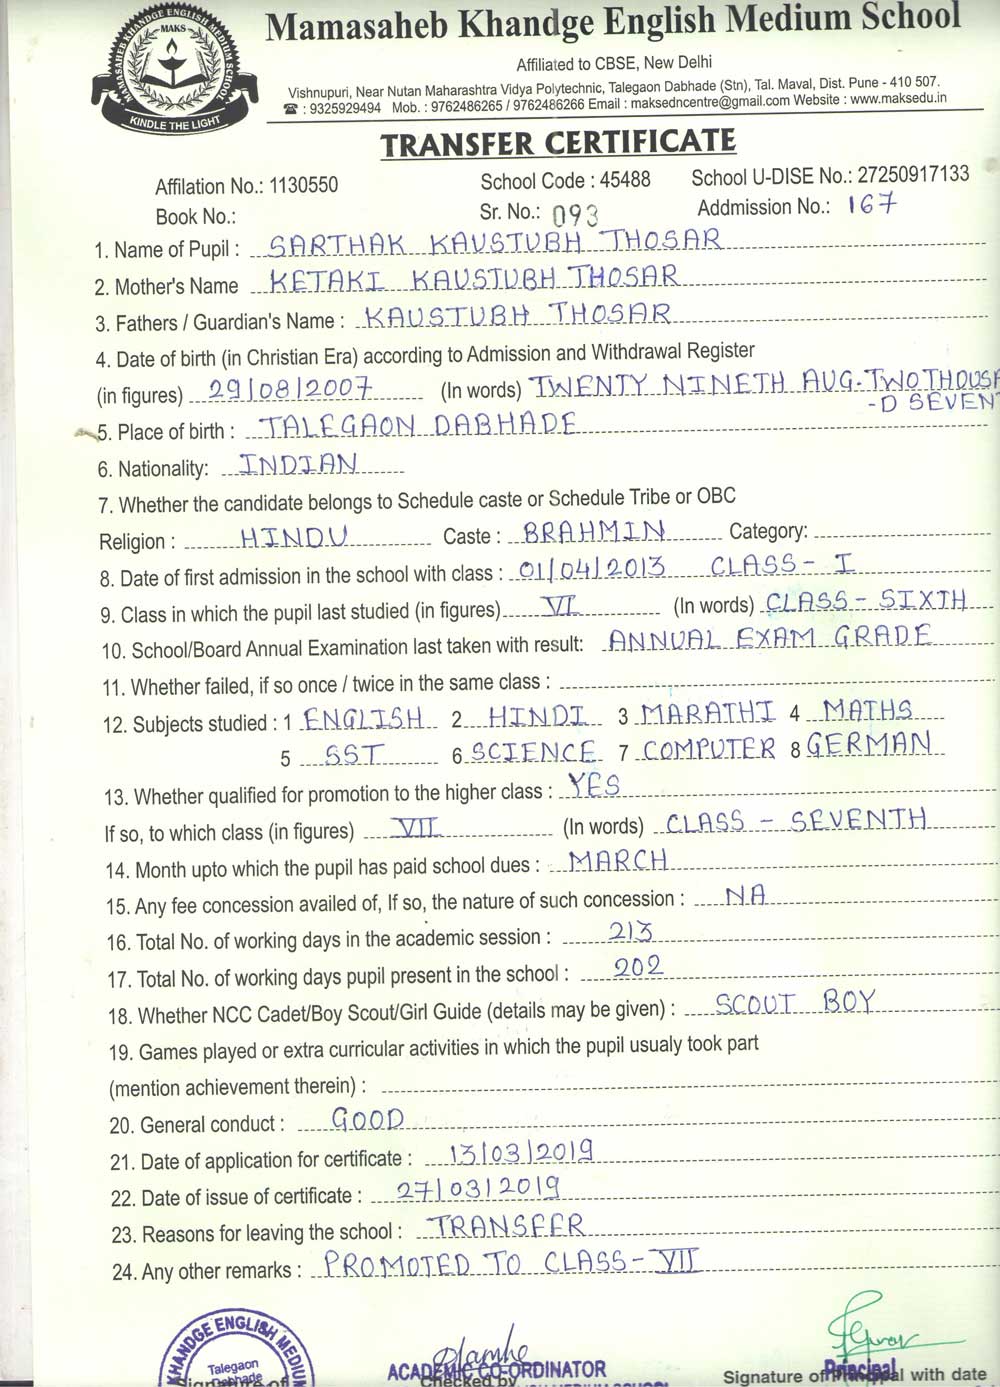 MAMASAHEB KHANDGE ENGLISH MEDIUM SCHOOL
MAKS
KINDLE THE LIGHT
Mamasaheb Khandge English Medium School
Affiliated to CBSE, New Delhi
Vishnupuri, Near Nutan Maharashtra Vidya Polytechnic, Talegaon Dabhade (Stn), Tal. Maval, Dist. Pune - 410 507.
☎ : 9325929494 Mob. : 9762486265 / 9762486266 Email : maksedncentre@gmail.com Website : www.maksedu.in
TRANSFER CERTIFICATE
Affilation No.: 1130550 School Code : 45488 School U-DISE No.: 27250917133
Book No.: Sr. No.: 093 Addmission No.: 167
1. Name of Pupil : SARTHAK KAUSTUBH THOSAR
2. Mother's Name KETAKI KAUSTUBH THOSAR
3. Fathers / Guardian's Name : KAUSTUBH THOSAR
4. Date of birth (in Christian Era) according to Admission and Withdrawal Register
(in figures) 29/08/2007 (In words) TWENTY NINETH AUG-TWO THOUSA
-D SEVEN
5. Place of birth : TALEGAON DABHADE
6. Nationality: INDIAN
7. Whether the candidate belongs to Schedule caste or Schedule Tribe or OBC
Religion : HINDU Caste : BRAHMIN Category:
8. Date of first admission in the school with class : 01/04/2013 CLASS - I
9. Class in which the pupil last studied (in figures) VI (In words) CLASS - SIXTH
10. School/Board Annual Examination last taken with result: ANNUAL EXAM GRADE
11. Whether failed, if so once / twice in the same class :
12. Subjects studied : 1 ENGLISH 2 HINDI 3 MARATHI 4 MATHS
5 SST 6 SCIENCE 7 COMPUTER 8 GERMAN
13. Whether qualified for promotion to the higher class : YES
If so, to which class (in figures) VII (In words) CLASS - SEVENTH
14. Month upto which the pupil has paid school dues : MARCH
15. Any fee concession availed of, If so, the nature of such concession : NA
16. Total No. of working days in the academic session : 213
17. Total No. of working days pupil present in the school : 202
18. Whether NCC Cadet/Boy Scout/Girl Guide (details may be given) : SCOUT BOY
19. Games played or extra curricular activities in which the pupil usualy took part
(mention achievement therein) :
20. General conduct : GOOD
21. Date of application for certificate : 13/03/2019
22. Date of issue of certificate : 27/03/2019
23. Reasons for leaving the school : TRANSFER
24. Any other remarks : PROMOTED TO CLASS - VII
KHANDGE ENGLISH MEDIUM
Talegaon
Dabhade
Signature of
ACADEMIC CO-ORDINATOR
Checked by
Principal
Signature of Principal with date